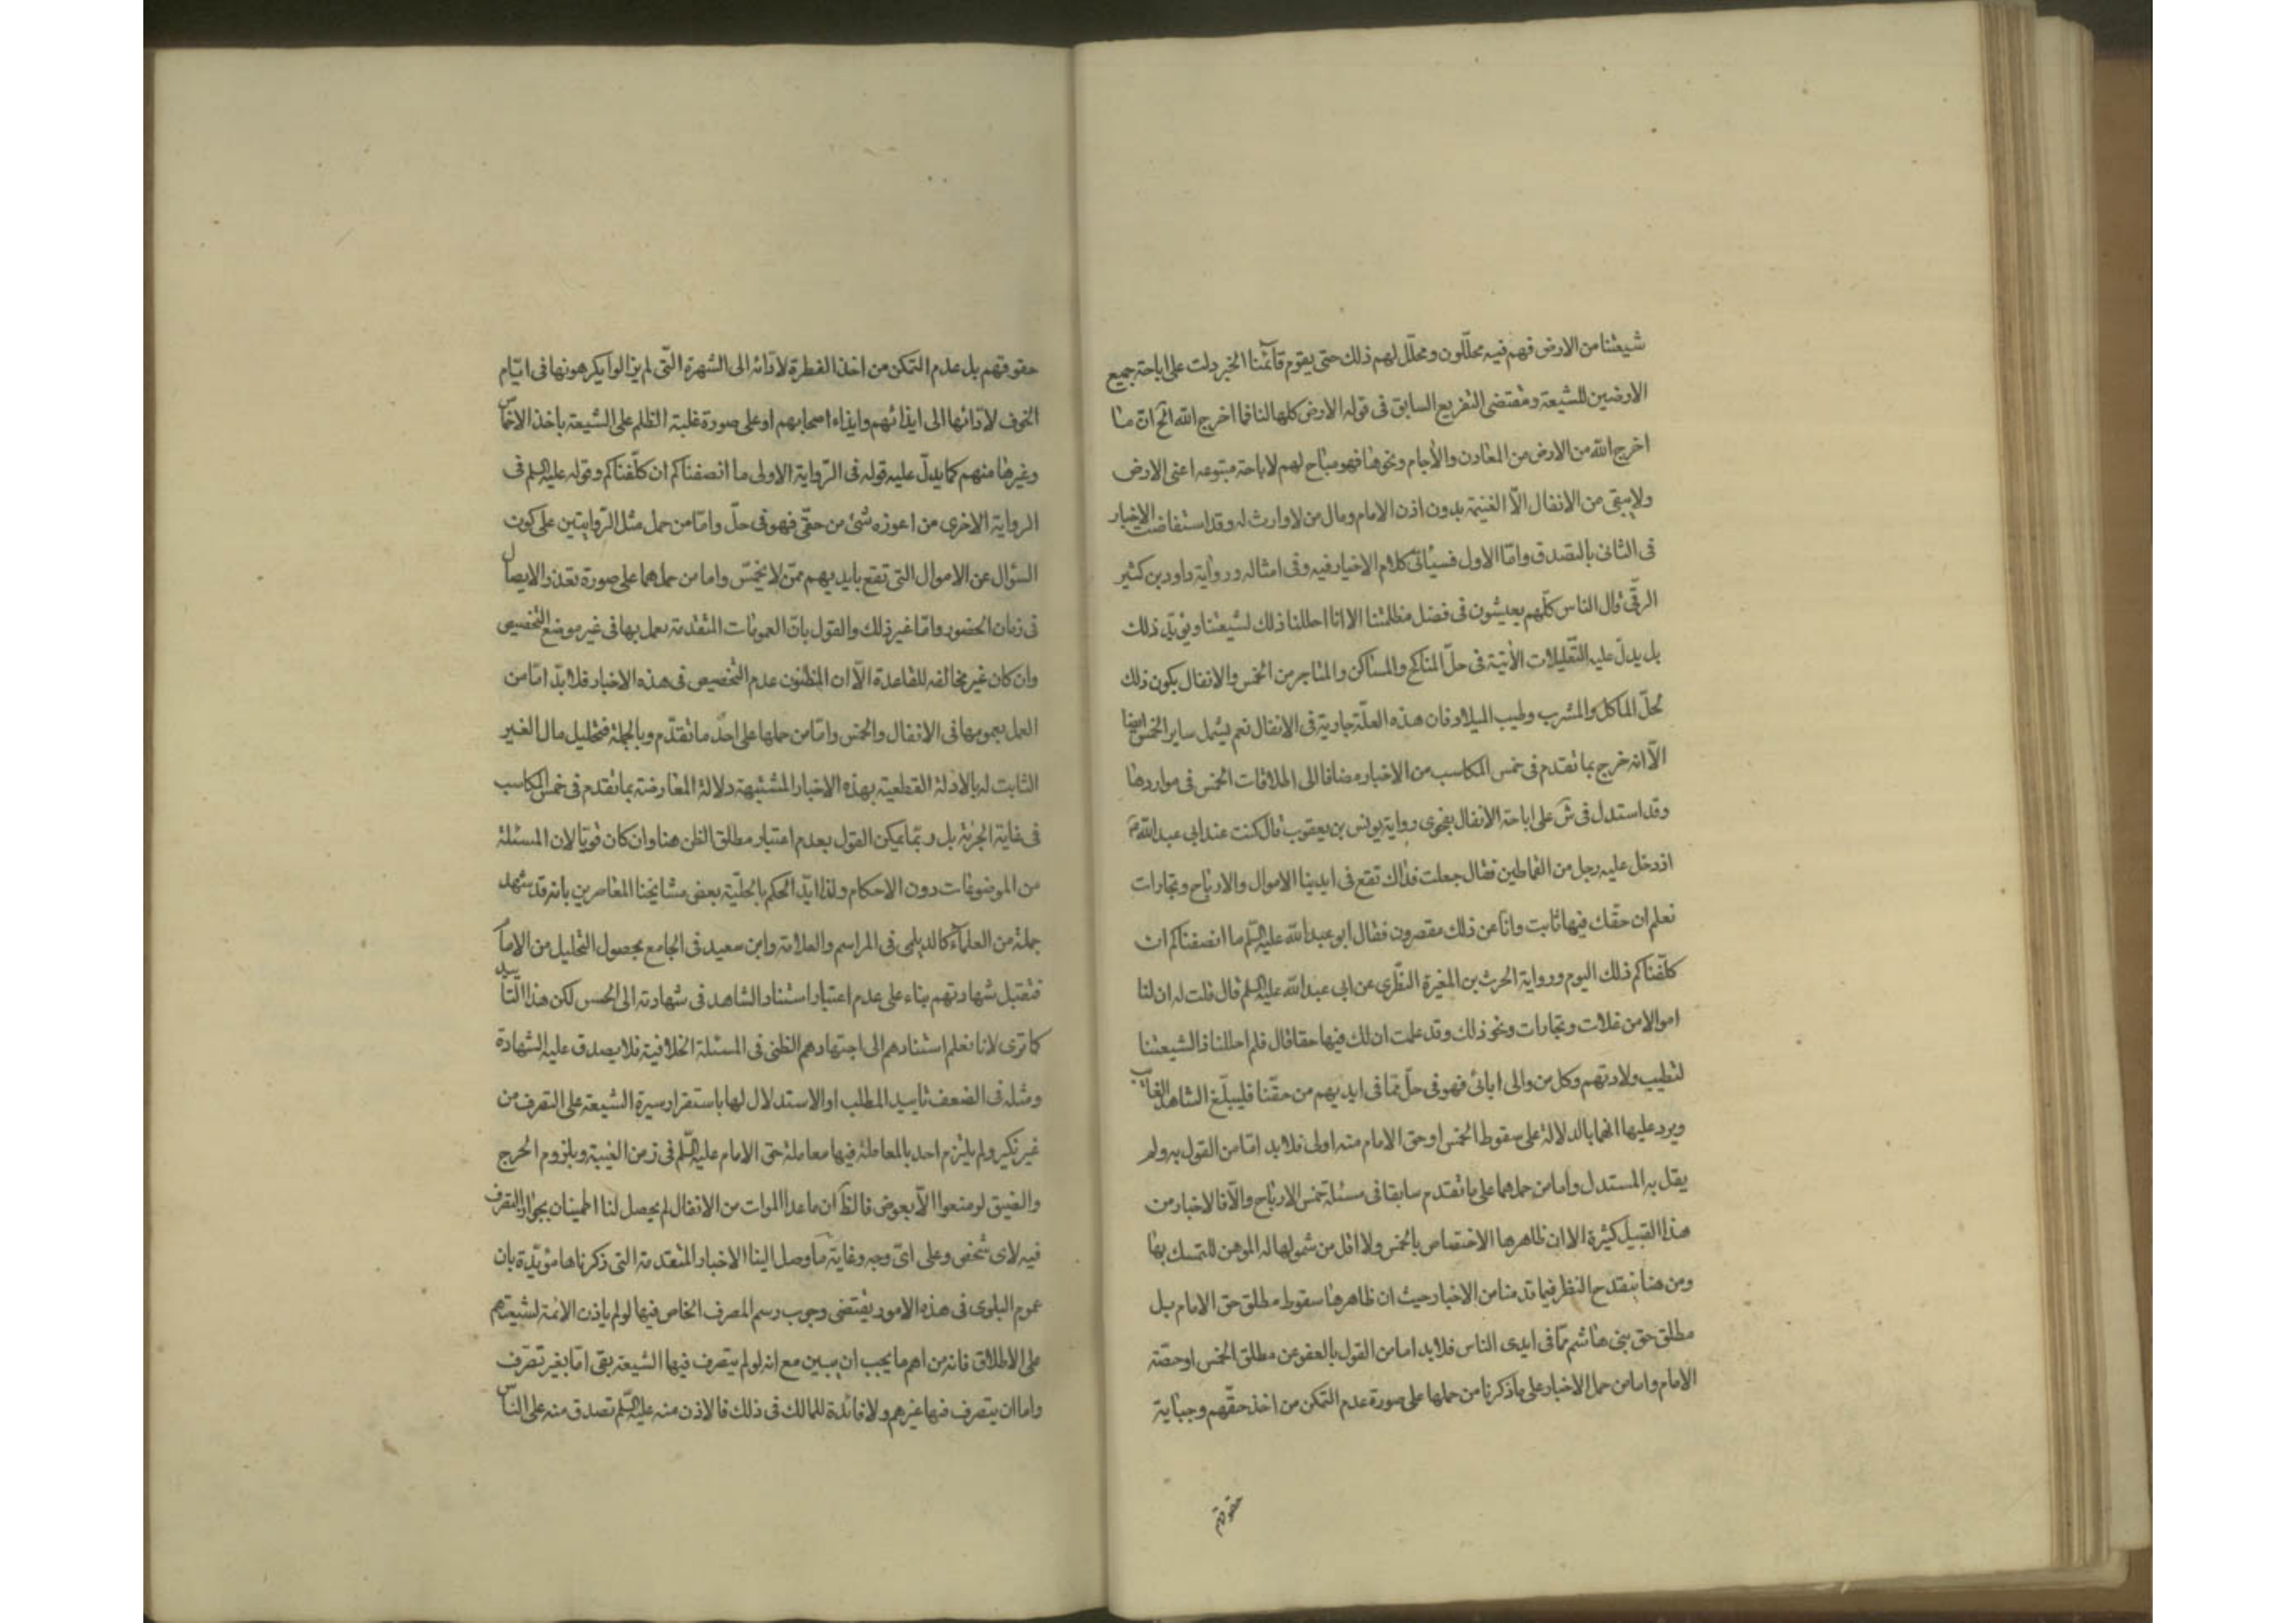 شيعتنا من الارض فهم فيه محلّلون ومحلّل لهم ذلك حتى يقوم قآئمنا الخبر دلت على اباحة جميع
الارضين للشيعة ومقتضى التفريع السابق فى قوله الارض كلها لنا فما اخرج الله الخ ان ما
اخرج الله من الارض من المعادن والأجام ونحوها فهو مباح لهم لاباحة متبوعه اعنى الارض
ولا يبقى من الانفال الّا الغنيمة بدون اذن الامام ومال من لا وارث له وقد استفاضت الاخبار
فى الثانى بالتصدق وامّا الاول فسيأتى كلام الاخيار فيه وفى امثاله ورواية داود بن كثير
الرقّى قال الناس كلّهم يعيشون فى فضل مظلمتنا الا انا احللنا ذلك لشيعتنا ويؤيّد ذلك
بل يدلّ عليه التّعليلات الأتية فى حلّ المناكح والمساكن والمتاجر من الخمس والانفال بكون ذلك
لحلّ المأكل والمشرب وطيب الميلاد فان هذه العلّة جارية فى الانفال نعم يشمل ساير الخمس ايضا
الّا انه خرج بما تقدم فى خمس المكاسب من الاخبار مضافا الى اطلاقات الخمس فى مواردها
وقد استدل فى ش على اباحة الأنفال بفحوى رواية يونس بن يعقوب قال كنت عند ابى عبد الله ع
اذ دخل عليه رجل من القماطين فقال جعلت فداك تقع فى ايدينا الاموال والارباح وتجارات
نعلم ان حقّك فيها ثابت وانّا عن ذلك مقصرون فقال ابو عبد الله عليه السّلم ما انصفناكم ان
كلّفناكم ذلك اليوم ورواية الحرث بن المغيرة النظرى عن ابى عبد الله عليه السلم قال قلت له ان لنا
اموالا من غلات وتجارات ونحو ذلك وقد علمت ان لك فيها حقا قال فلم احللنا ذا لشيعتنا
لتطيب ولادتهم وكل من والى ابائى فهو فى حلّ ممّا فى ايديهم من حقّنا فليبلّغ الشاهد الغائب
ويرد عليها انهما بالدلالة على سقوط الخمس او حق الامام منه اولى فلا بد امّا من القول به ولم
يقل به المستدل واما من حملهما على ما تقدم سابقا فى مسئلة خمس الارباح والّا فالاخبار من
هذا القبيل كثيرة الا ان ظاهرها الاختصاص بالخمس ولا اقل من شمولها له الموهن للتمسك بها
ومن هنا ينقدح النظر فيما قدمنا من الاخبار حيث ان ظاهرها سقوط مطلق حق الامام بل
مطلق حق بنى هاشم ممّا فى ايدى الناس فلا بد اما من القول بالعفو عن مطلق الخمس او حصّة
الامام واما من حمل الاخبار على ما ذكرنا من حملها على صورة عدم التمكن من اخذ حقّهم وجباية
حقوقهم
حقوقهم بل عدم التمكن من اخذ الفطرة لادّائه الى الشهرة الّتى لم يزالوا يكرهونها فى ايّام
الخوف لادّائها الى ايذائهم وايذاء اصحابهم او على صورة غلبة الظلم على الشيعة باخذ الاخماس
وغيرها منهم كما يدلّ عليه قوله فى الرّواية الاولى ما انصفناكم ان كلّفناكم وقوله عليه السلم فى
الرواية الاخرى من اعوزه شئ من حقّى فهو فى حلّ وامّا من حمل مثل الرّوايتين على كون
السؤال عن الاموال التى تقع بايديهم ممّن لا يخمّس واما من حملهما على صورة تعذر الايصال
فى زمان الحضور وامّا غير ذلك والقول بانّ العمومات المتقدمة يعمل بها فى غير موضع التخصيص
وان كان غير مخالف للقاعدة الّا ان المظنون عدم التخصيص فى هذه الاخبار فلا بدّ امّا من
العمل بعمومها فى الأنفال والخمس وامّا من حملها على احد ما تقدّم وبالجملة فتحليل مال الغير
الثابت له بالادلة القطعية بهذه الاخبار المشتبهة دلالة المعارضة بما تقدم فى خمس المكاسب
فى غاية الجرئة بل ربّما يمكن القول بعدم اعتبار مطلق الظن هنا وان كان قويا لان المسئلة
من الموضوعات دون الاحكام ولذا ايّد الحكم بالحلّية بعض مشايخنا المعاصرين بانه قد شهد
جملة من العلمآء كالديلمى فى المراسم والعلامة وابن سعيد فى الجامع بحصول التحليل من الامام
فتقبل شهادتهم بناء على عدم اعتبار استناد الشاهد فى شهادته الى الحس لكن هذا التأييد
كما ترى لانا نعلم استنادهم الى اجتهادهم الظنى فى المسئلة الخلافية فلا يصدق عليه الشهادة
ومثله فى الضعف تاييد المطلب او الاستدلال لها باستقرار سيرة الشيعة على التصرف من
غير نكير ولم يلتزم احد بالمعاملة فيها معاملة حق الامام عليه السّلم فى زمن الغيبة وبلزوم الحرج
والضيق لو منعوا الّا بعوض فالظّ ان ما عدا الموات من الانفال لم يحصل لنا اطمينان بجواز التصرف
فيه لاى شخص وعلى اىّ وجه وغاية ما وصل الينا الاخبار المتقدمة التى ذكرناها مؤيّدة بان
عموم البلوى فى هذه الامور يقتضى وجوب رسم المصرف الخاص فيها لو لم ياذن الائمة لشيعتهم
على الاطلاق فانه من اهم ما يجب ان يبين مع انه لو لم يتصرف فيها الشيعة بقى امّا بغير تصرّف
واما ان يتصرف فيها غيرهم ولا فائدة للمالك فى ذلك فالاذن منه عليه السّلم تصدق منه على الناس